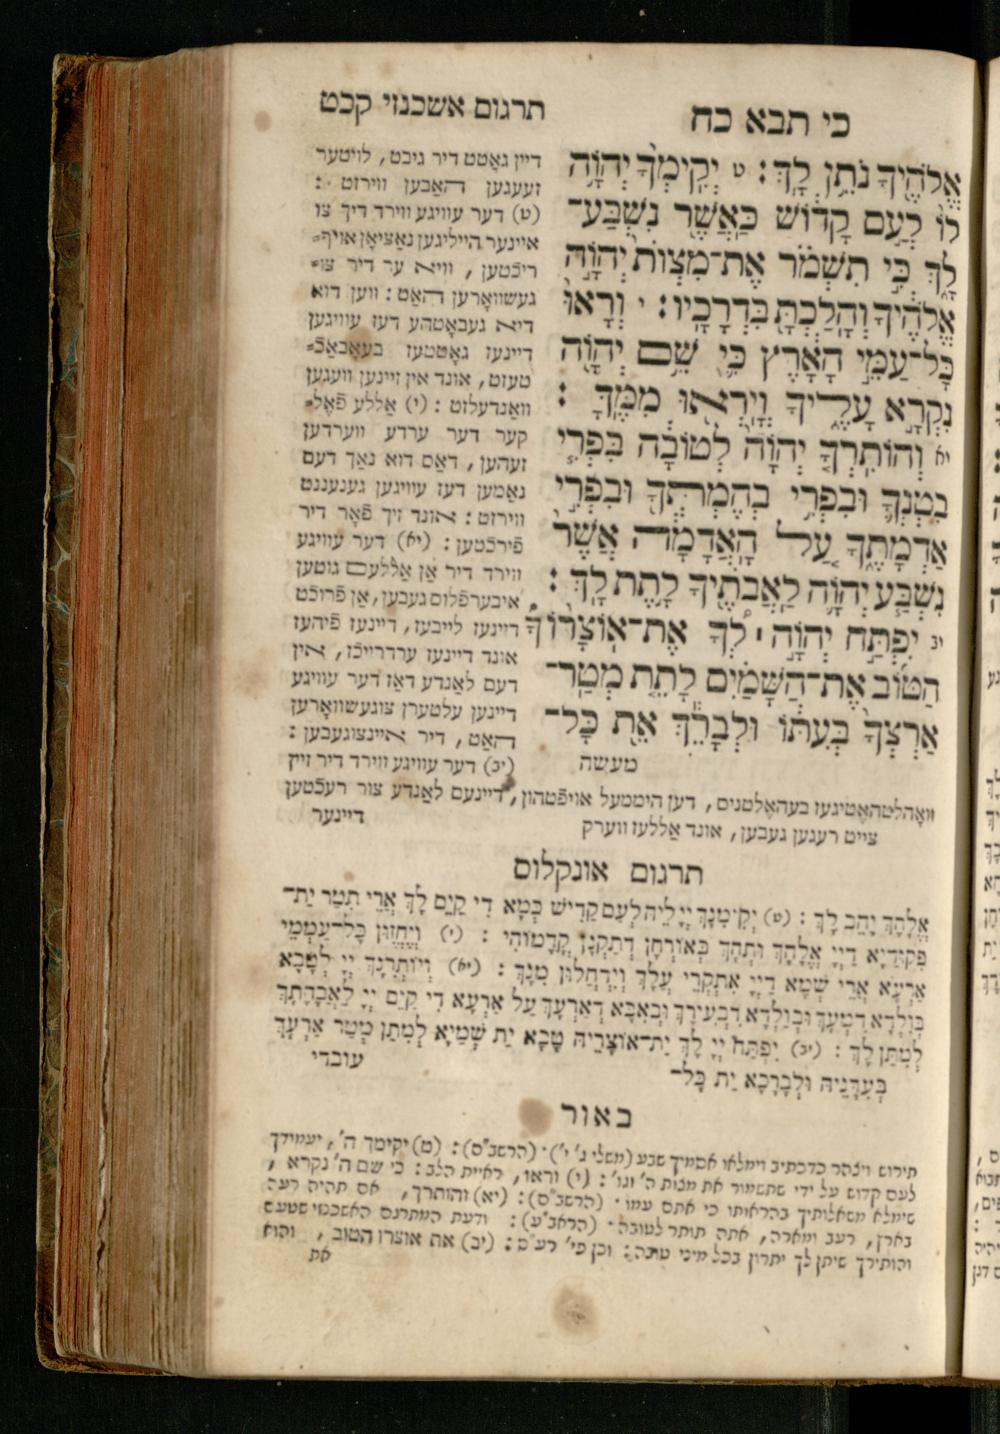 כי תבא כח
תרגום אשכנזי קכט
אֱלֹהֶ֖יךָ נֹתֵ֥ן לָֽךְ׃ ט יְקִֽימְךָ֨ יְהֹוָ֥ה
לוֹ֙ לְעַ֣ם קָד֔וֹשׁ כַּאֲשֶׁ֖ר נִֽשְׁבַּֽע־
לָ֑ךְ כִּ֣י תִשְׁמֹ֗ר אֶת־מִצְוֺת֙ יְהֹוָ֣ה
אֱלֹהֶ֔יךָ וְהָלַכְתָּ֖ בִּדְרָכָֽיו׃ י וְרָאוּ֙
כָּל־עַמֵּ֣י הָאָ֔רֶץ כִּ֛י שֵׁ֥ם יְהֹוָ֖ה
נִקְרָ֣א עָלֶ֑יךָ וְיָֽרְא֖וּ מִמֶּֽךָּ׃
יא וְהוֹתִֽרְךָ֤ יְהֹוָה֙ לְטוֹבָ֔ה בִּפְרִ֧י
בִטְנְךָ֛ וּבִפְרִ֥י בְהֶמְתְּךָ֖ וּבִפְרִ֣י
אַדְמָתֶ֑ךָ עַ֚ל הָאֲדָמָ֔ה אֲשֶׁ֨ר
נִשְׁבַּ֧ע יְהֹוָ֛ה לַאֲבֹתֶ֖יךָ לָ֥תֶת לָֽךְ׃
יב יִפְתַּ֣ח יְהֹוָ֣ה ׀ לְ֠ךָ אֶת־אוֹצָר֨וֹ
הַטּ֜וֹב אֶת־הַשָּׁמַ֗יִם לָתֵ֤ת מְטַֽר־
אַרְצְךָ֙ בְּעִתּ֔וֹ וּלְבָרֵ֕ךְ אֵ֖ת כָּל־
מעשה
דיין גאָטט דיר גיבט, לויטער
זעעגען האַבען ווירזט :
(ט) דער עוויגע ווירד דיך צו
איינער הייליגען נאַציאָן אויף=
ריכֿטען, וויא ער דיר צו=
געשוואָרען האַט : ווען דוא
דיא געבאָטהע דעז עוויגען
דיינעז גאָטטעז בעאָבאַכֿ=
טעזט, אונד אין זיינען וועגען
וואַנדעלזט : (י) אַללע פֿאָל=
קער דער ערדע ווערדען
זעהען, דאַס דוא נאַך דעם
נאַמען דעז עוויגען גענעננט
ווירזט : אונד זיך פֿאָר דיר
פֿירכֿטען : (יא) דער עוויגע
ווירד דיר אַן אַללעם גוטען
איבערפֿלוס געבען, אַן פֿרוכֿט
דיינעז לייבעז, דיינעז פֿיהעז
אונד דיינעז ערדרייכֿז, אין
דעם לאַנדע דאַז דער עוויגע
דיינען עלטערן צוגעשוואָרען
האַט, דיר איינצוגעבען :
(יב) דער עוויגע ווירד דיר זיין
וואָהלטהאָטיגעז בעהאָלטנים, דען היממעל אויפֿטהון, דיינעם לאַנדע צור רעכֿטען
צייט רעגען געבען, אונד אַללעז ווערק
דיינער
תרגום אונקלוס
אֱלָהָךְ יָהֵב לָךְ : (ט) יְקִימִנָּךְ יְיָ לֵיהּ לְעַם קַדִּישׁ כְּמָא דִי קַיֵּם לָךְ אֲרֵי תִטַּר יַת־
פִּקּוּדַיָּא דַיְיָ אֱלָהָךְ וּתְהָךְ בְּאוֹרְחָן דְּתַקְנָן קֳדָמוֹהִי : (י) וְיֶחֱזוּן כָּל־עַמְמֵי
אַרְעָא אֲרֵי שְׁמָא דַיְיָ אִתְקְרֵי עֲלָךְ וְיִדְחֲלוּן מִנָּךְ : (יא) וְיוֹתְרִנָּךְ יְיָ לְטָבָא
בְּוַלְדָּא דִמְעָךְ וּבְוַלְדָּא דִבְעִירָךְ וּבְאִבָּא דְאַרְעָךְ עַל אַרְעָא דִי קַיֵּם יְיָ לַאֲבָהָתָךְ
לְמִתַּן לָךְ : (יב) יִפְתַּח יְיָ לָךְ יַת־אוֹצָרֵיהּ טָבָא יַת שְׁמַיָּא לְמִתַּן מְטַר אַרְעָךְ
בְּעִדָּנֵיהּ וּלְבָרָכָא יַת כָּל־
עובדי
באור
תירוש ויצהר כדכתיב וימלאו אסמיך שבע (משלי ג' י') ׃ (הרשב"ם) : (ט) יקימך ה', יעמידך
לעם קדוש על ידי שתשמור את מצות ה' וגו' : (י) וראו, ראיית הלב : כי שם ה' נקרא,
שימלא משאלותיך בהראותו כי אתם עמו ׃ (הרשב"ם) : (יא) והותרך, אם תהיה רעה
בארץ, רעב ומארה, אתה תותר לטובה ׃ (הראב"ע) : ודעת המתרגם האשכנזי שטעם
והותירך שיתן לך יתרון בכל מיני טובה : וכן פי' רע"ם : (יב) את אוצרו הטוב, והוא
את